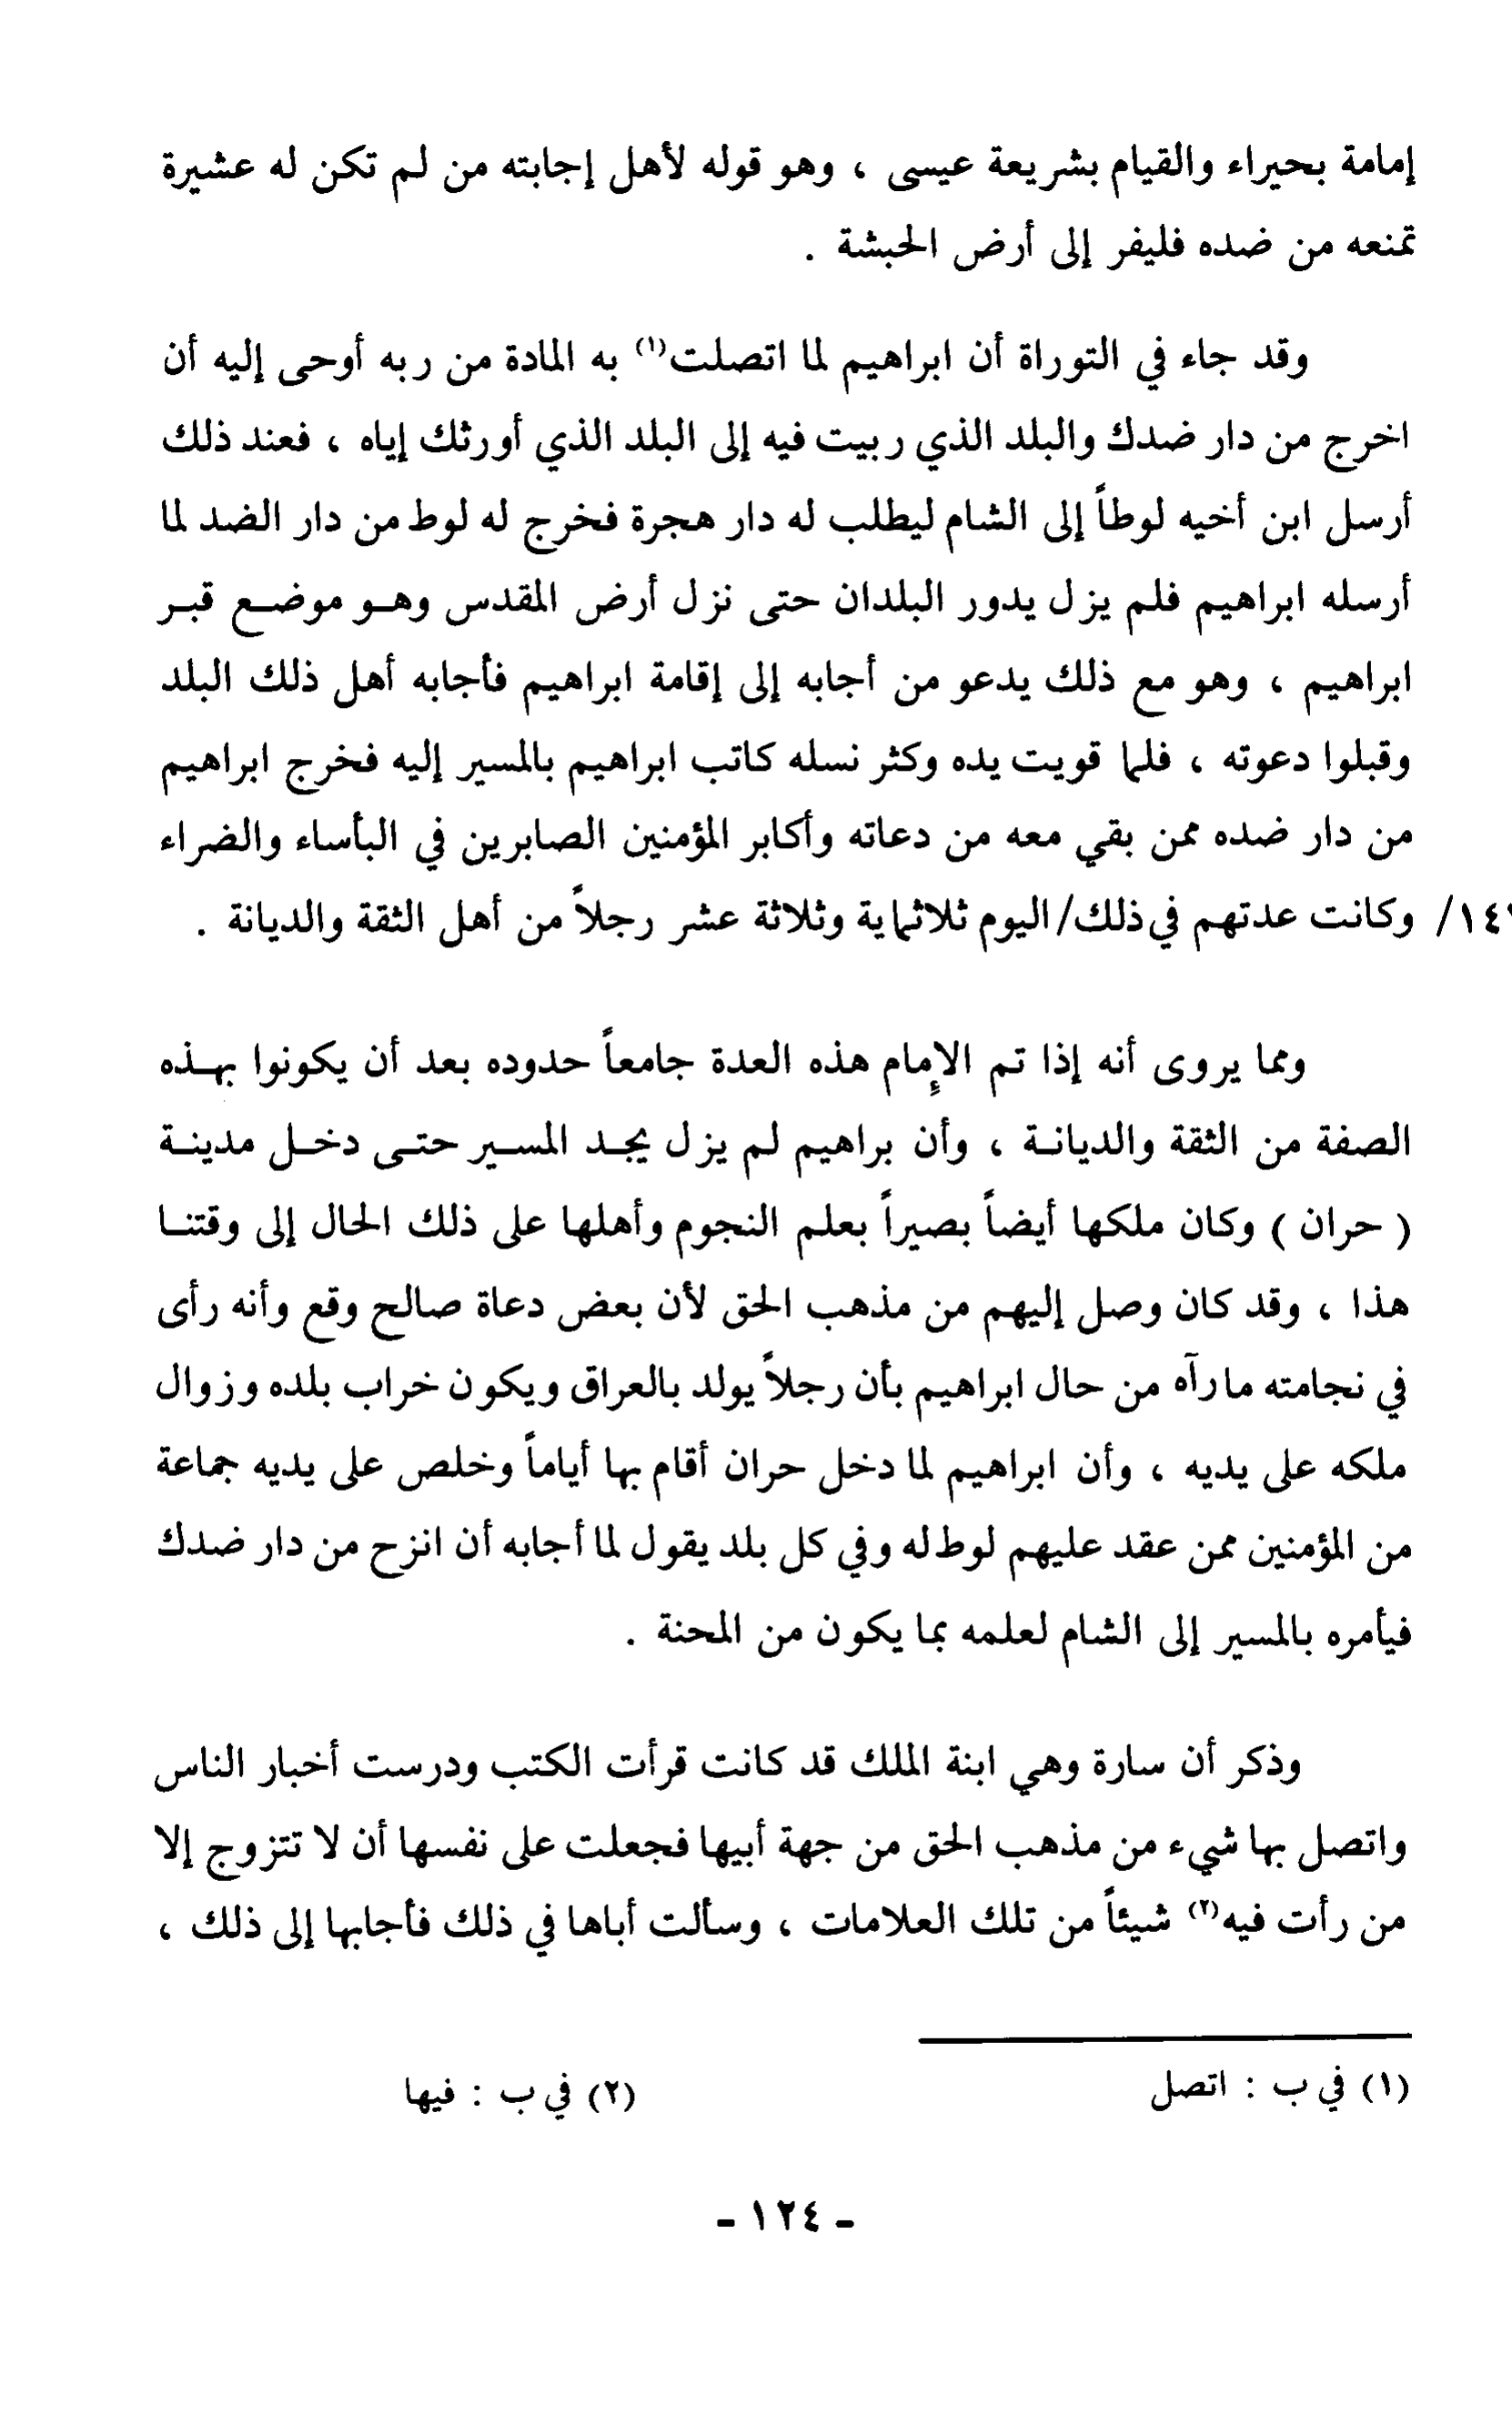 إمامة بحيراء والقيام بشريعة عيسى ، وهو قوله لأهل إجابته من لم تكن له عشيرة
تمنعه من ضده فليفر إلى أرض الحبشة .
وقد جاء في التوراة أن ابراهيم لما اتصلت(١) به المادة من ربه أوحى إليه أن
اخرج من دار ضدك والبلد الذي ربيت فيه إلى البلد الذي أورثك إياه ، فعند ذلك
أرسل ابن أخيه لوطاً إلى الشام ليطلب له دار هجرة فخرج له لوط من دار الضد لما
أرسله ابراهيم فلم يزل يدور البلدان حتى نزل أرض المقدس وهو موضع قبر
ابراهيم ، وهو مع ذلك يدعو من أجابه إلى إقامة ابراهيم فأجابه أهل ذلك البلد
وقبلوا دعوته ، فلما قويت يده وكثر نسله كاتب ابراهيم بالمسير إليه فخرج ابراهيم
من دار ضده ممن بقي معه من دعاته وأكابر المؤمنين الصابرين في البأساء والضراء
١٤/ وكانت عدتهم في ذلك/اليوم ثلاثماية وثلاثة عشر رجلاً من أهل الثقة والديانة .
ومما يروى أنه إذا تم الإمام هذه العدة جامعاً حدوده بعد أن يكونوا بهذه
الصفة من الثقة والديانة ، وأن براهيم لم يزل يجد المسير حتى دخل مدينة
( حران ) وكان ملكها أيضاً بصيراً بعلم النجوم وأهلها على ذلك الحال إلى وقتنا
هذا ، وقد كان وصل إليهم من مذهب الحق لأن بعض دعاة صالح وقع وأنه رأى
في نجامته ما رآه من حال ابراهيم بأن رجلاً يولد بالعراق ويكون خراب بلده وزوال
ملكه على يديه ، وأن ابراهيم لما دخل حران أقام بها أياماً وخلص على يديه جماعة
من المؤمنين ممن عقد عليهم لوط له وفي كل بلد يقول لما أجابه أن انزح من دار ضدك
فيأمره بالمسير إلى الشام لعلمه بما يكون من المحنة .
وذكر أن سارة وهي ابنة الملك قد كانت قرأت الكتب ودرست أخبار الناس
واتصل بها شيء من مذهب الحق من جهة أبيها فجعلت على نفسها أن لا تتزوج إلا
من رأت فيه(٢) شيئاً من تلك العلامات ، وسألت أباها في ذلك فأجابها إلى ذلك ،
(١) في ب : اتصل (٢) في ب : فيها
- ١٢٤ -